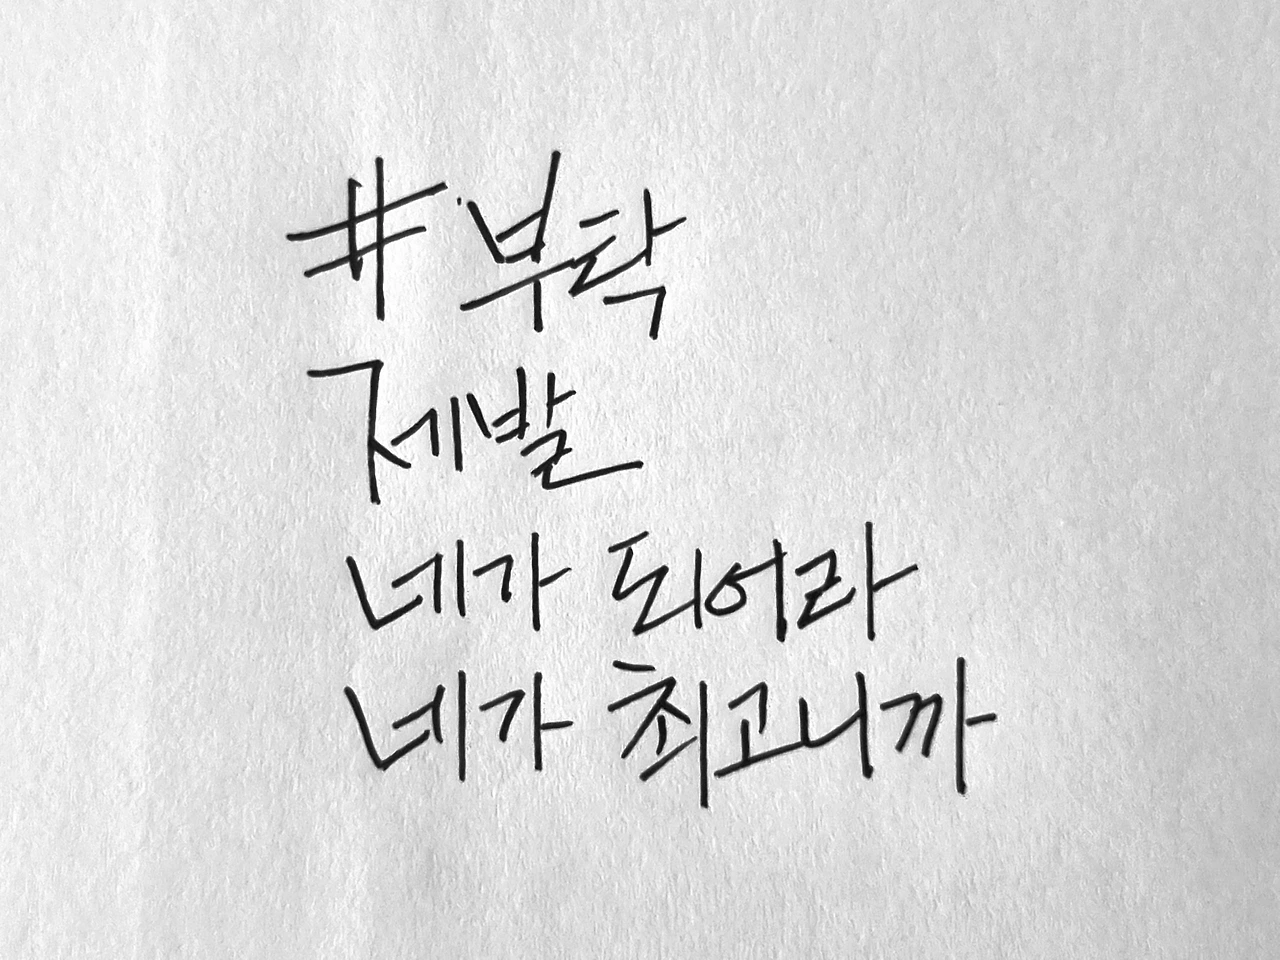 # 부탁
제발
네가 되어라
네가 최고니까